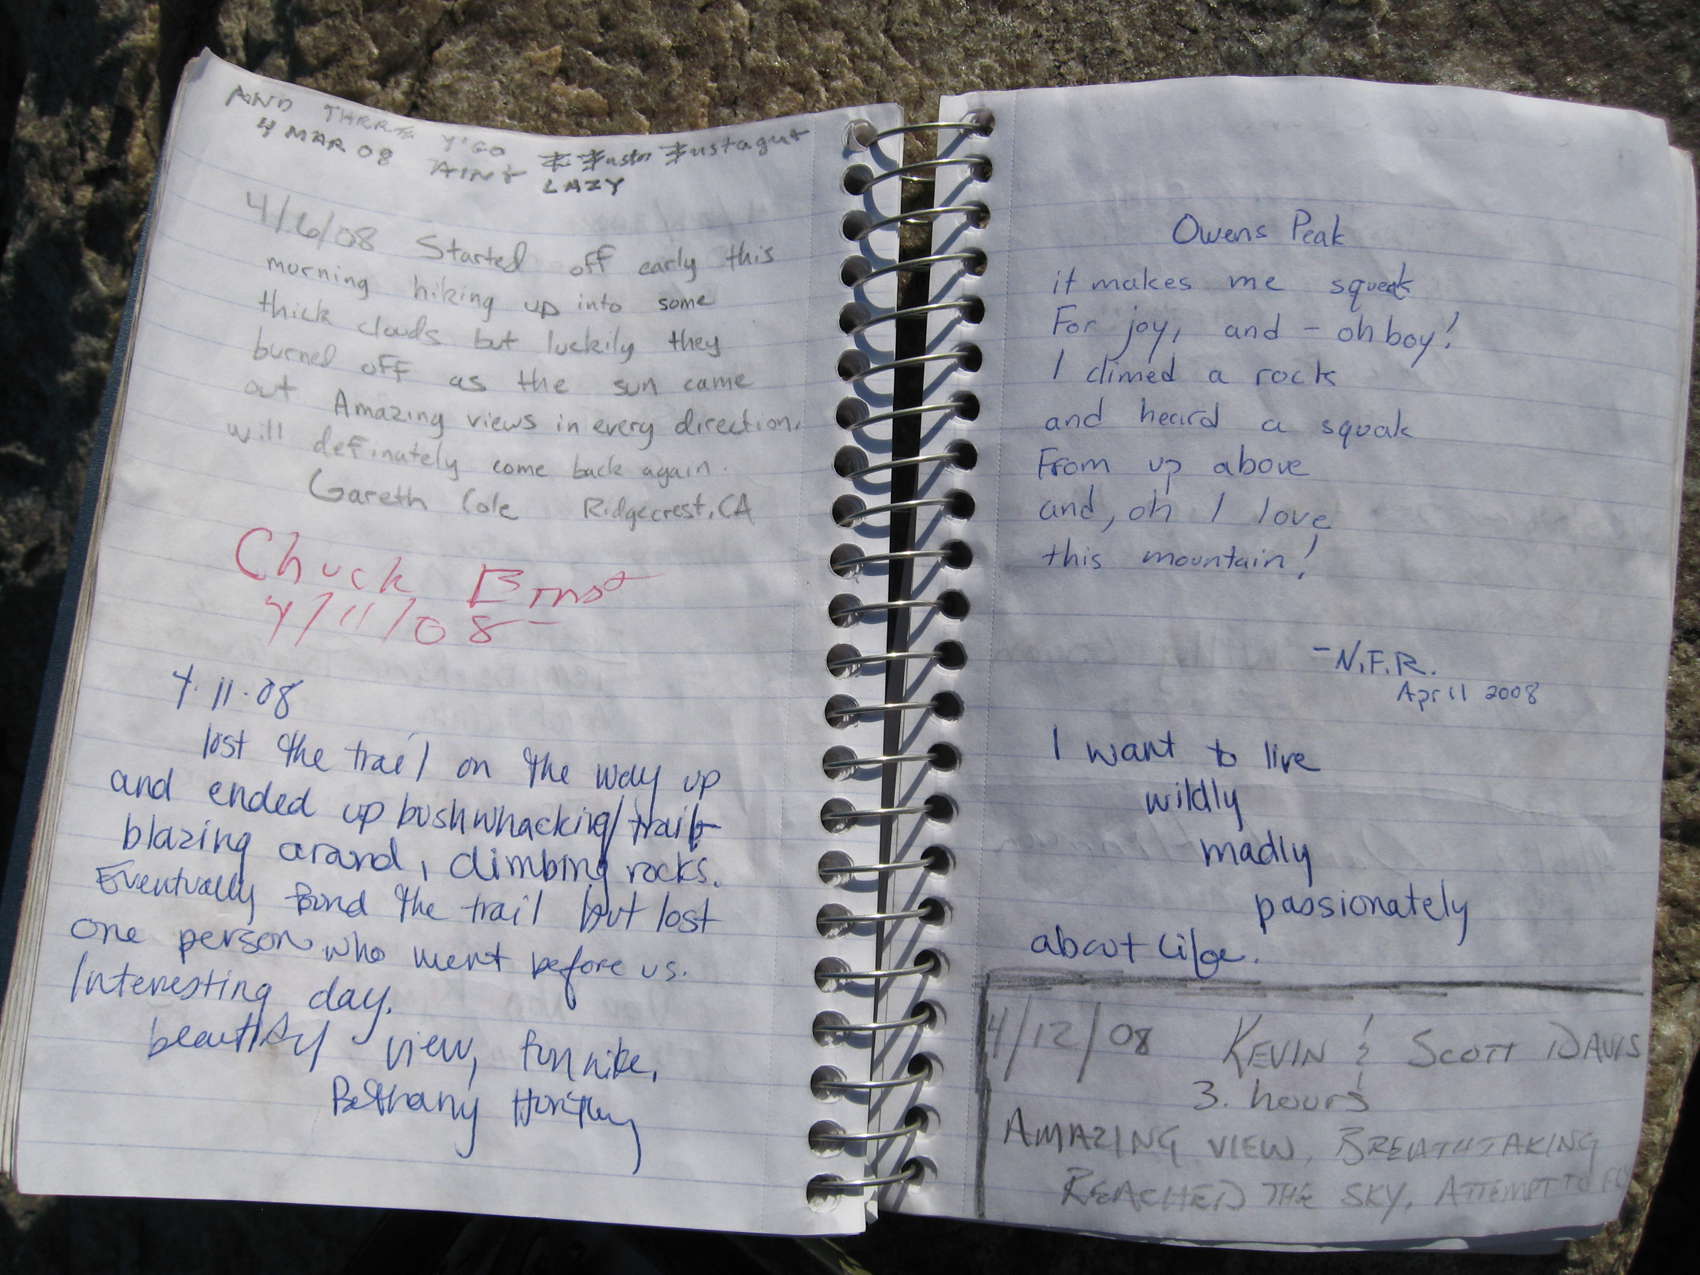 AND THERE Y'GO
4 MAR 08 AIN'T LAZY
4/6/08 Started off early this
morning hiking up into some
thick clouds but luckily they
burned off as the sun came
out Amazing views in every direction,
will definately come back again.
Gareth Cole Ridgecrest, CA
Chuck
4/11/08
4.11.08
lost the trail on the way up
and ended up bushwhacking/trail
blazing around, climbing rocks.
Eventually found the trail but lost
one person who went before us.
Interesting day.
beautiful view, fun hike.
Bethany
Owens Peak
it makes me squeek
For joy, and - oh boy!
I climed a rock
and heard a squak
From up above
and, oh I love
this mountain!
-N.F.R.
April 2008
I want to live
wildly
madly
passionately
about life.
4/12/08 KEVIN & SCOTT DAVIS
3. hours
AMAZING VIEW, BREATHTAKING
REACHED THE SKY, ATTEMPT TO FLY